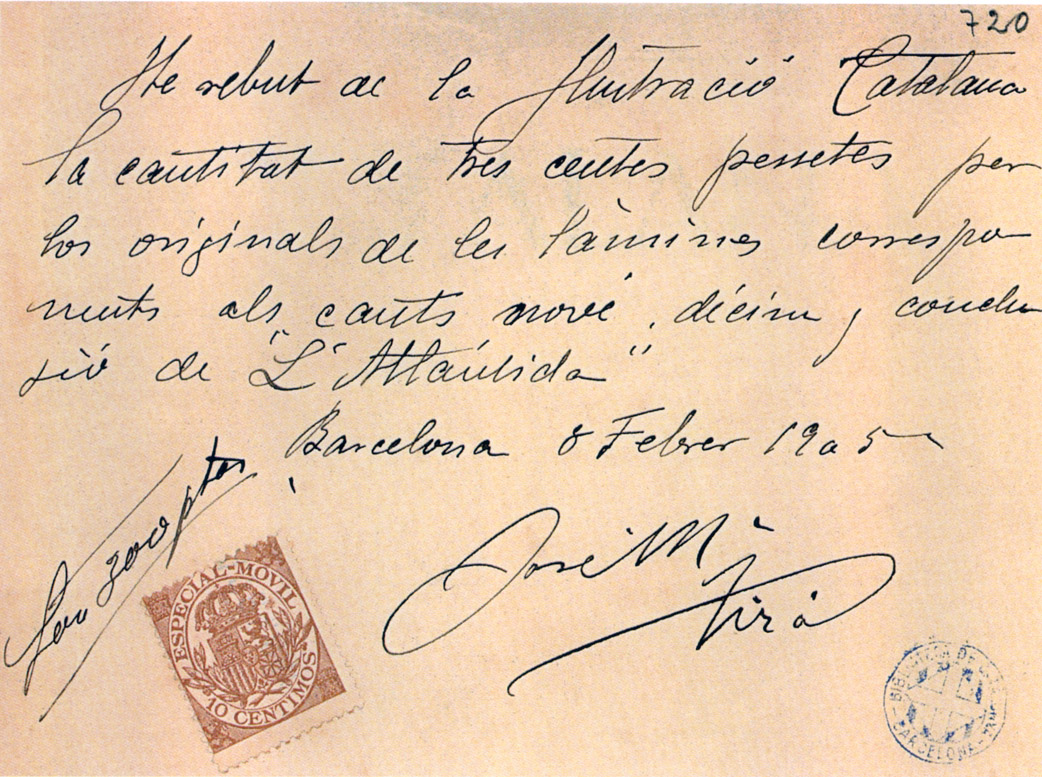 720
He rebut de la Ilustració Catalana
la cantitat de tres centes pessetes per
los originals de les làmines correspo
nents als cants nové, décim y conclu
sió de "L'Atlántida"
Barcelona 8 Febrer 1905
Son 300 ptas
José Mª
Xiró
ESPECIAL-MOVIL
10 CENTIMOS
BIBLIOTECA DE
BARCELONA